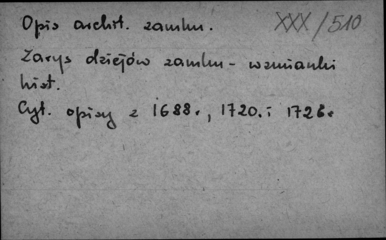 Opis archit. zamku. XXX/510
Zarys dziejów zamku - wzmianki
hist.
Cyt. opisy z 1688., 1720. i 1726.